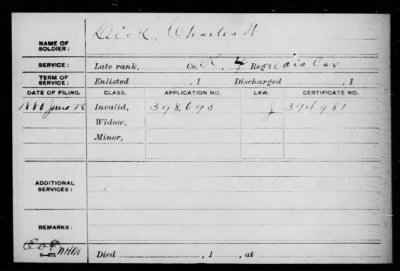 NAME OF SOLDIER: Dick, Charles W
SERVICE: Late rank, Co. K, 4 Reg't Wis Cav
TERM OF SERVICE: Enlisted , 1 Discharged , 1
DATE OF FILING. CLASS. APPLICATION NO. LAW. CERTIFICATE NO.
1880 June 28 Invalid, 398,693
Widow,
Minor,
ADDITIONAL SERVICES:
REMARKS:
Died , 1 , at